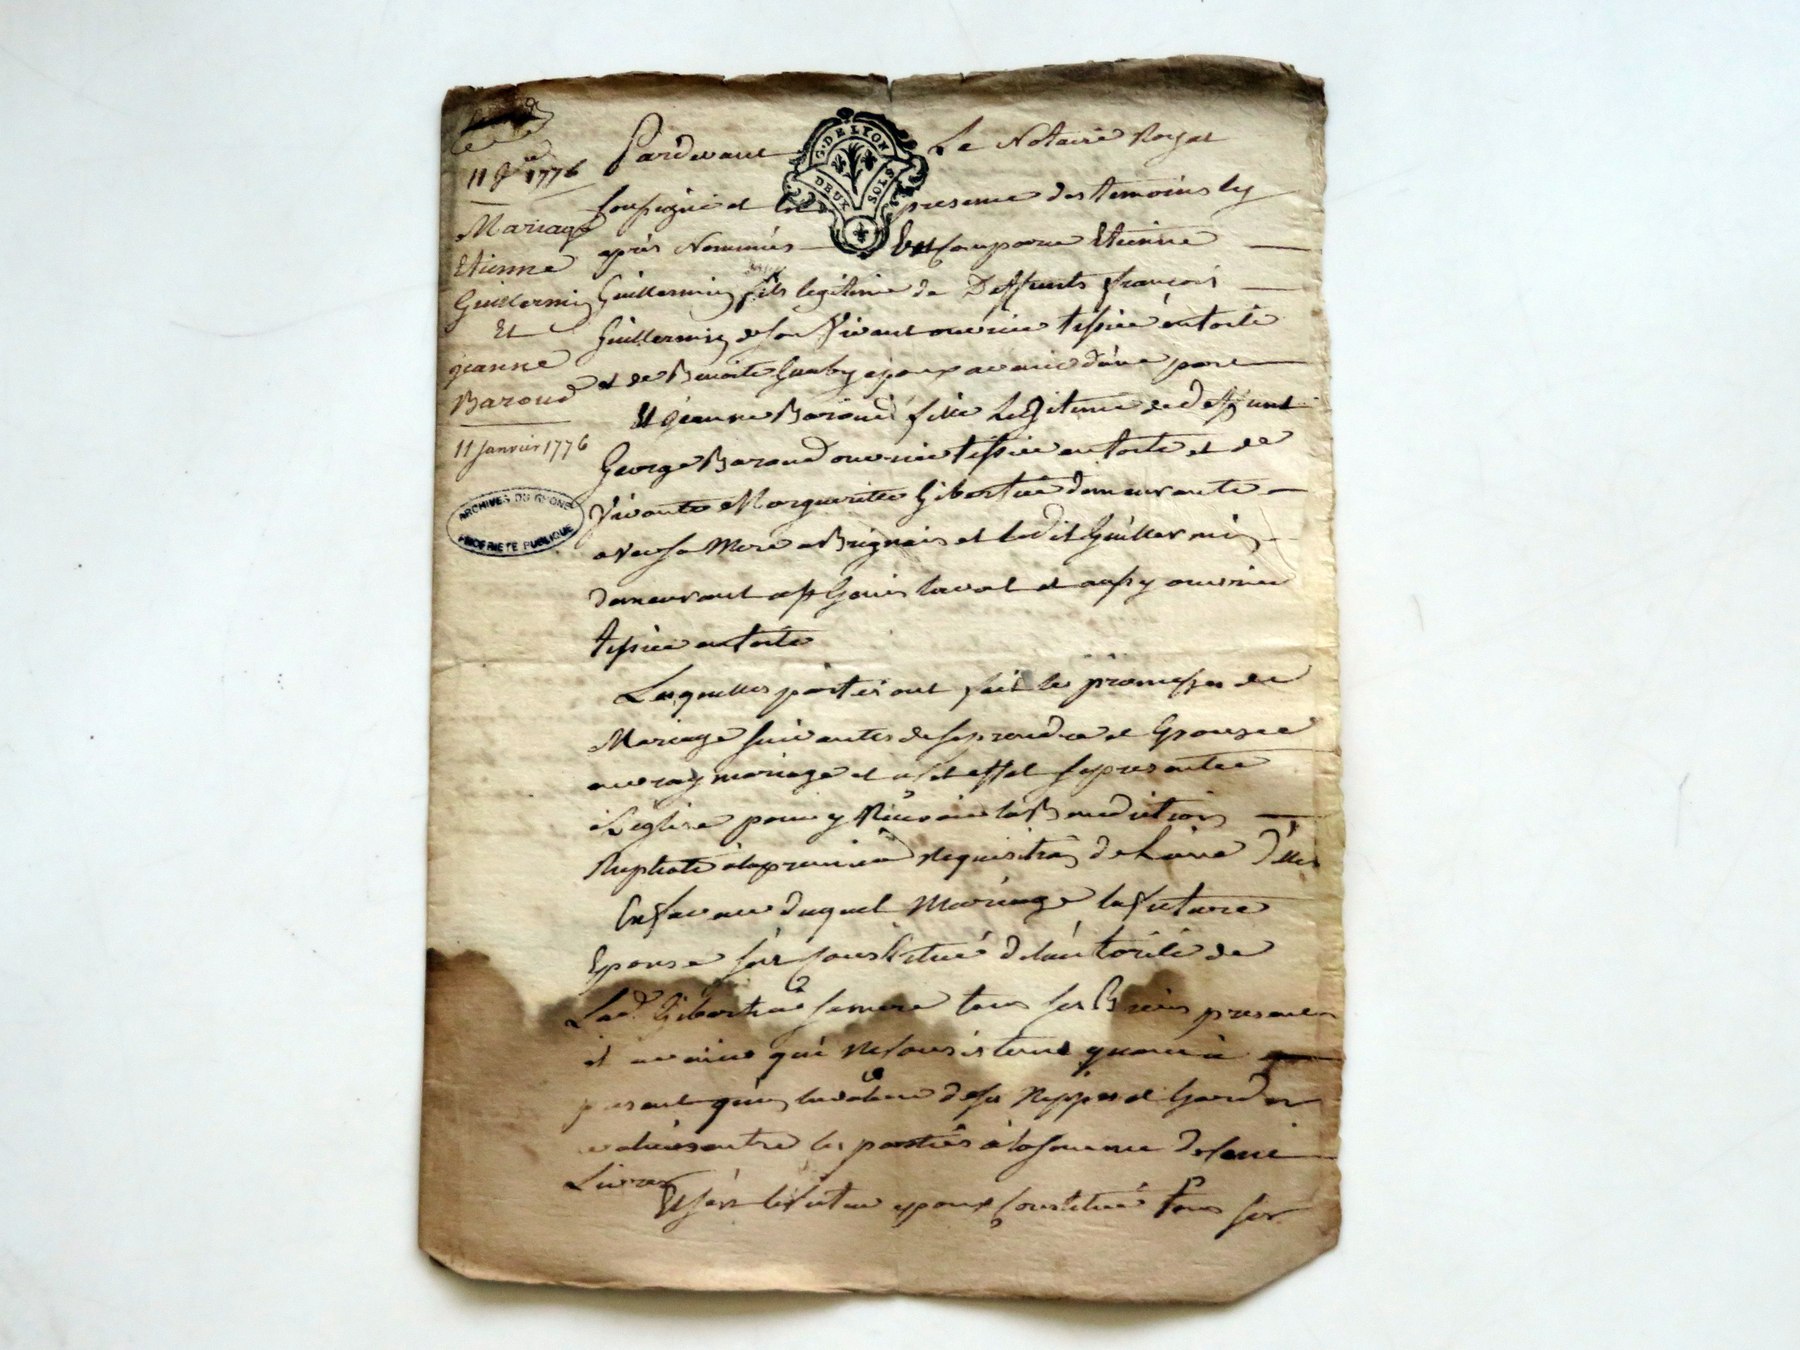 11 Jre 1776
Mariage
Etienne
Guillermin
Et
jeanne
Baroud
11 Janvier 1776
ARCHIVES DU RHONE
PROPRIETE PUBLIQUE
G. DE LYON
DEUX SOLS
Pardevant Le Notaire Royal
soussigné et en presence des temoins cy
après Nommés Est Comparu Etienne
Guillermin fils legitime de Deffunts françois
Guillermin de son Vivant ouvrier tissier en toile
et de Benoite epoux d'une part
Et jeanne Baroud fille Legitime de deffunt
George Baroud ouvrier tissier en toile et de
Vivante Marguerite Gibertier demeurante
avec sa Mere a Brignais et ledit Guillermin
demeurant a St Genis laval et aussy ouvrier
tissier en toile
Lesquelles parties ont fait les promesses de
Mariage suivantes de se prendre et Epouser
en vray mariage et a cet effet se presenter
à L'eglise pour y Recevoir la Benediction
Nuptiale à la premiere Requisition de L'une d'elles
En faveur duquel Mariage la future
Epouse s'est Constitué de l'autorité de
Lad. Gibertier sa mere tous ses Biens presents
et avenir qui ne Consistent quant à
present qu'en la valeur de ses Nippes et hardes
entre les parties à la somme de Cent
Livres
Et s'est le futur epoux Constitué tous ses